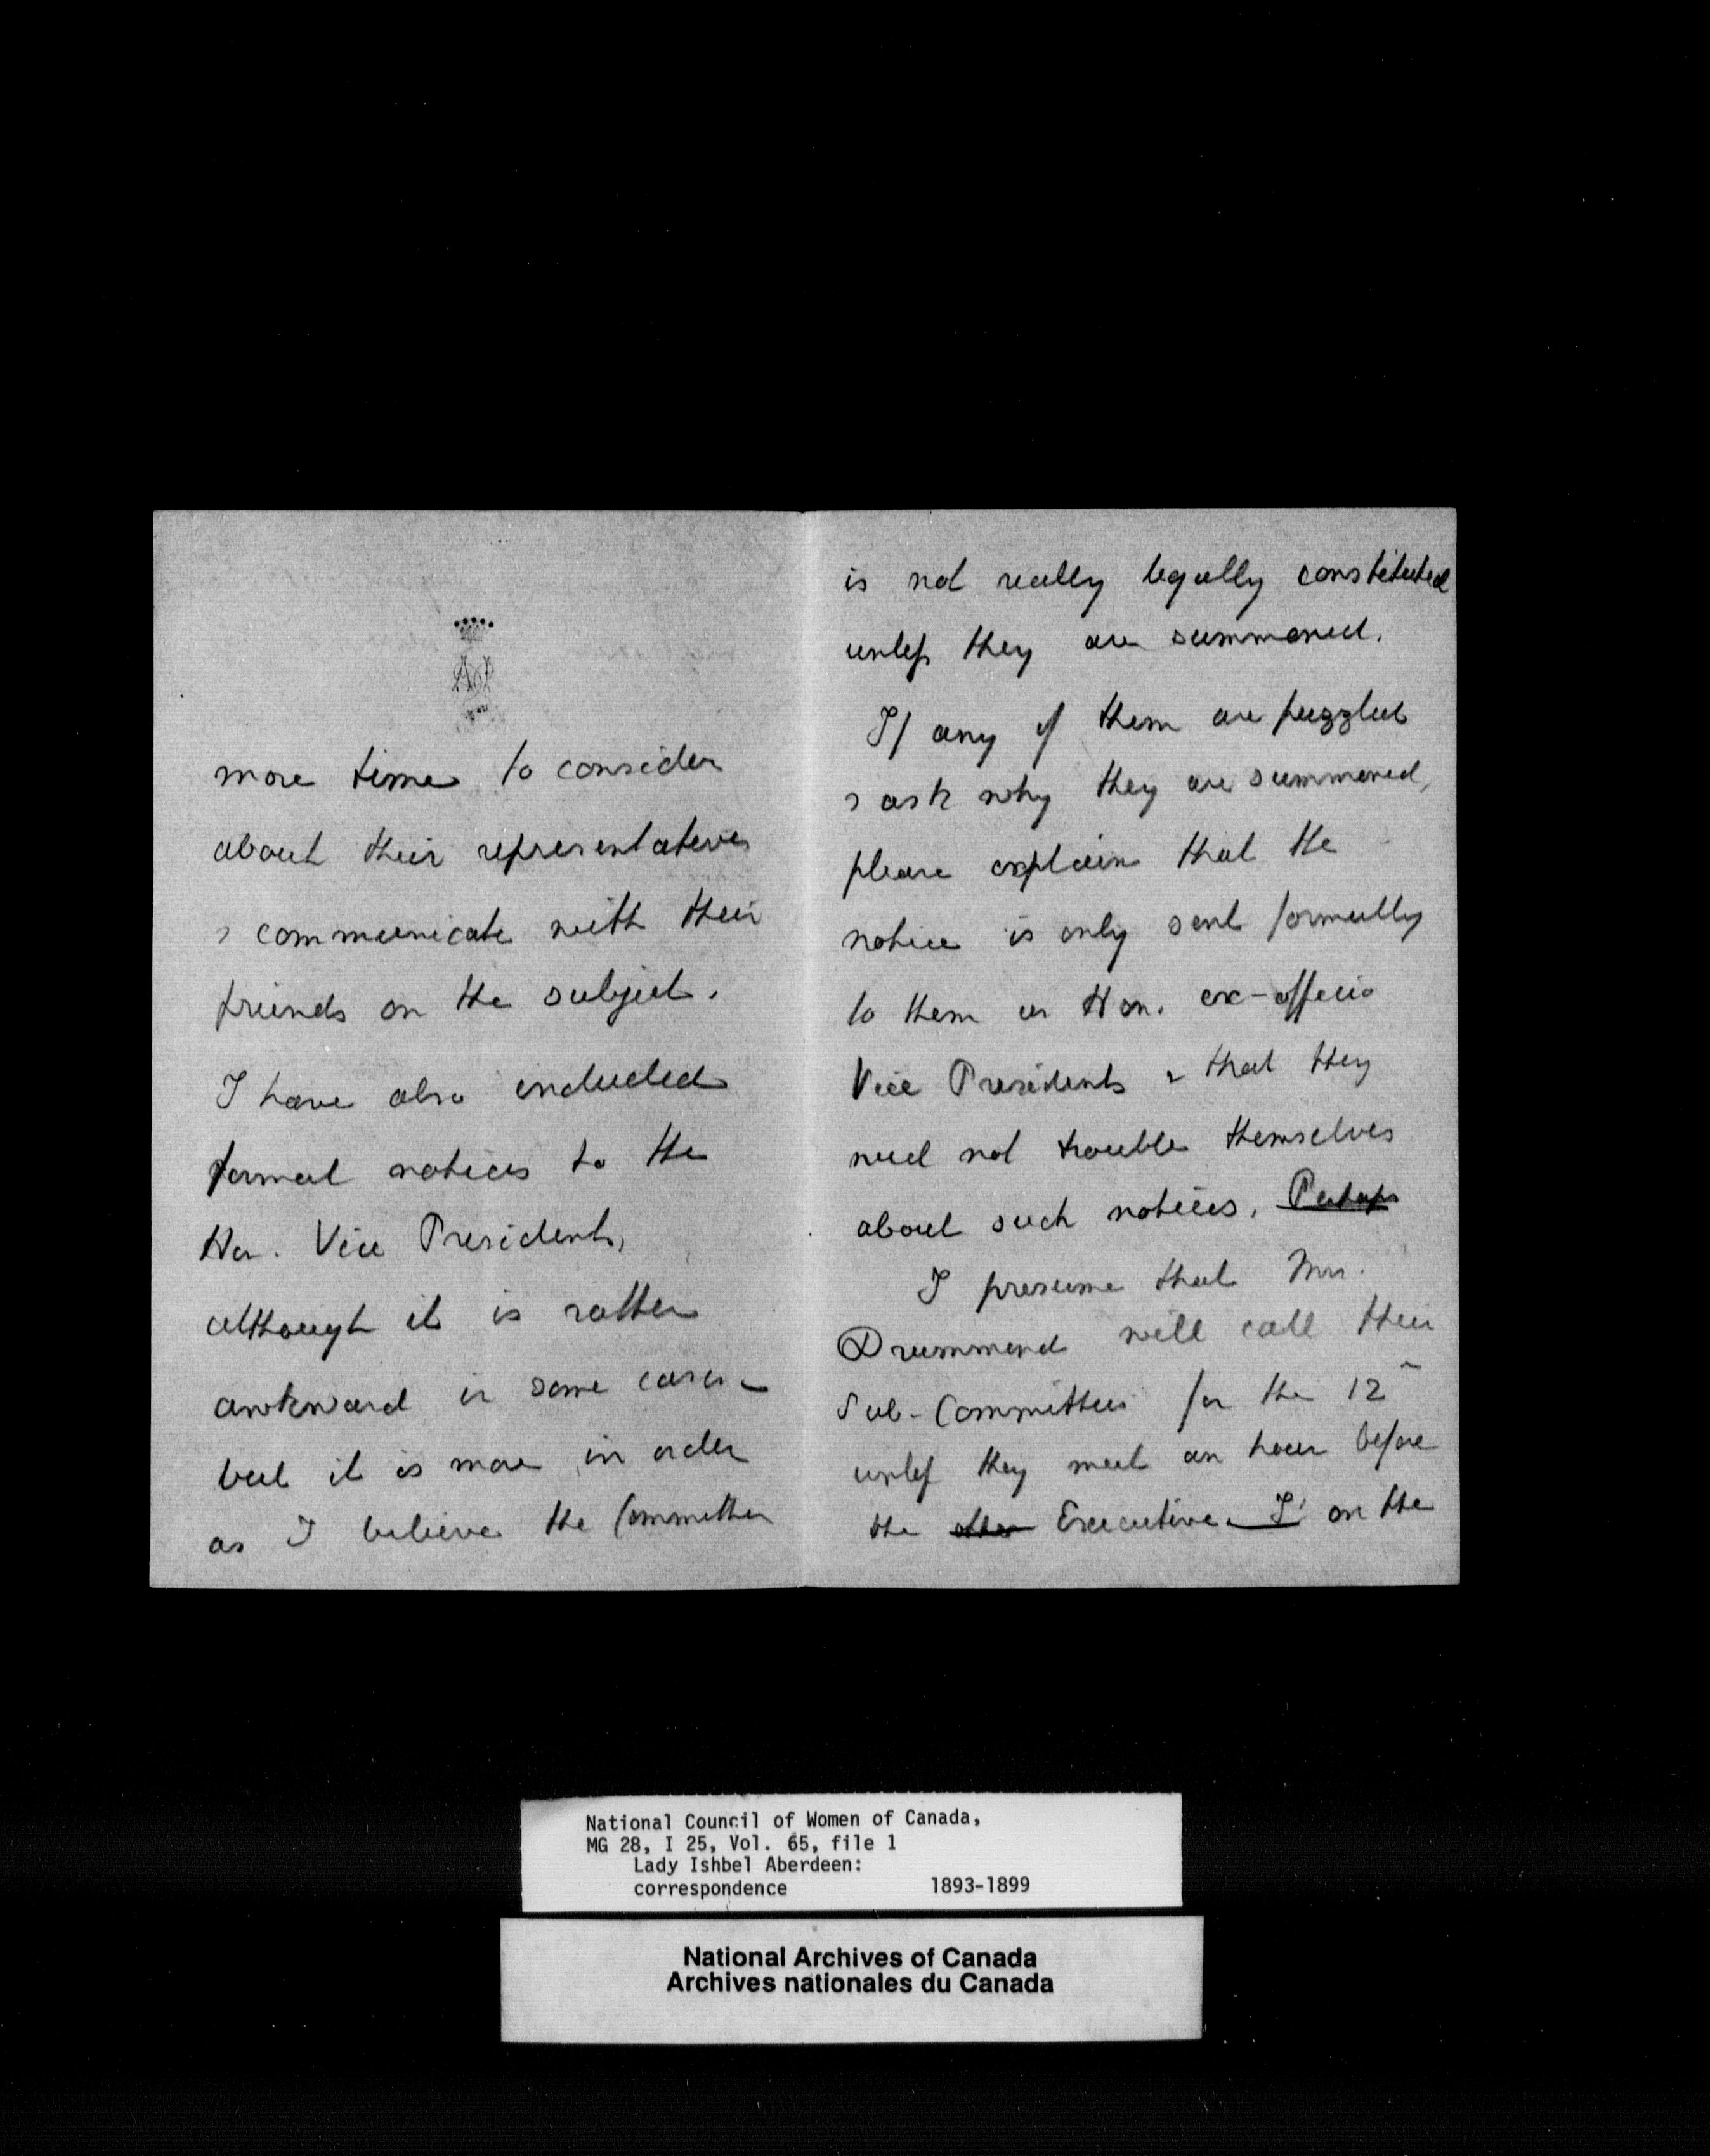 more time to consider
about their representatives
& communicate with their
friends on the subject.
I have also included
formal notices to the
Hon. Vice Presidents,
although it is rather
awkward in some cases –
but it is more in order
as I believe the Committee
is not really legally constituted
unless they are summoned.
If any of them are puzzled
& ask why they are summoned,
please explain that the
notice is only sent formally
to them as Hon. ex-officio
Vice Presidents & that they
need not trouble themselves
about such notices. Perhaps
I presume that Mrs.
Drummond will call their
Sub-Committees for the 12
unless they meet an hour before
the other Executive. I on the
National Council of Women of Canada,
MG 28, I 25, Vol. 65, file 1
Lady Ishbel Aberdeen:
correspondence 1893-1899
National Archives of Canada
Archives nationales du Canada